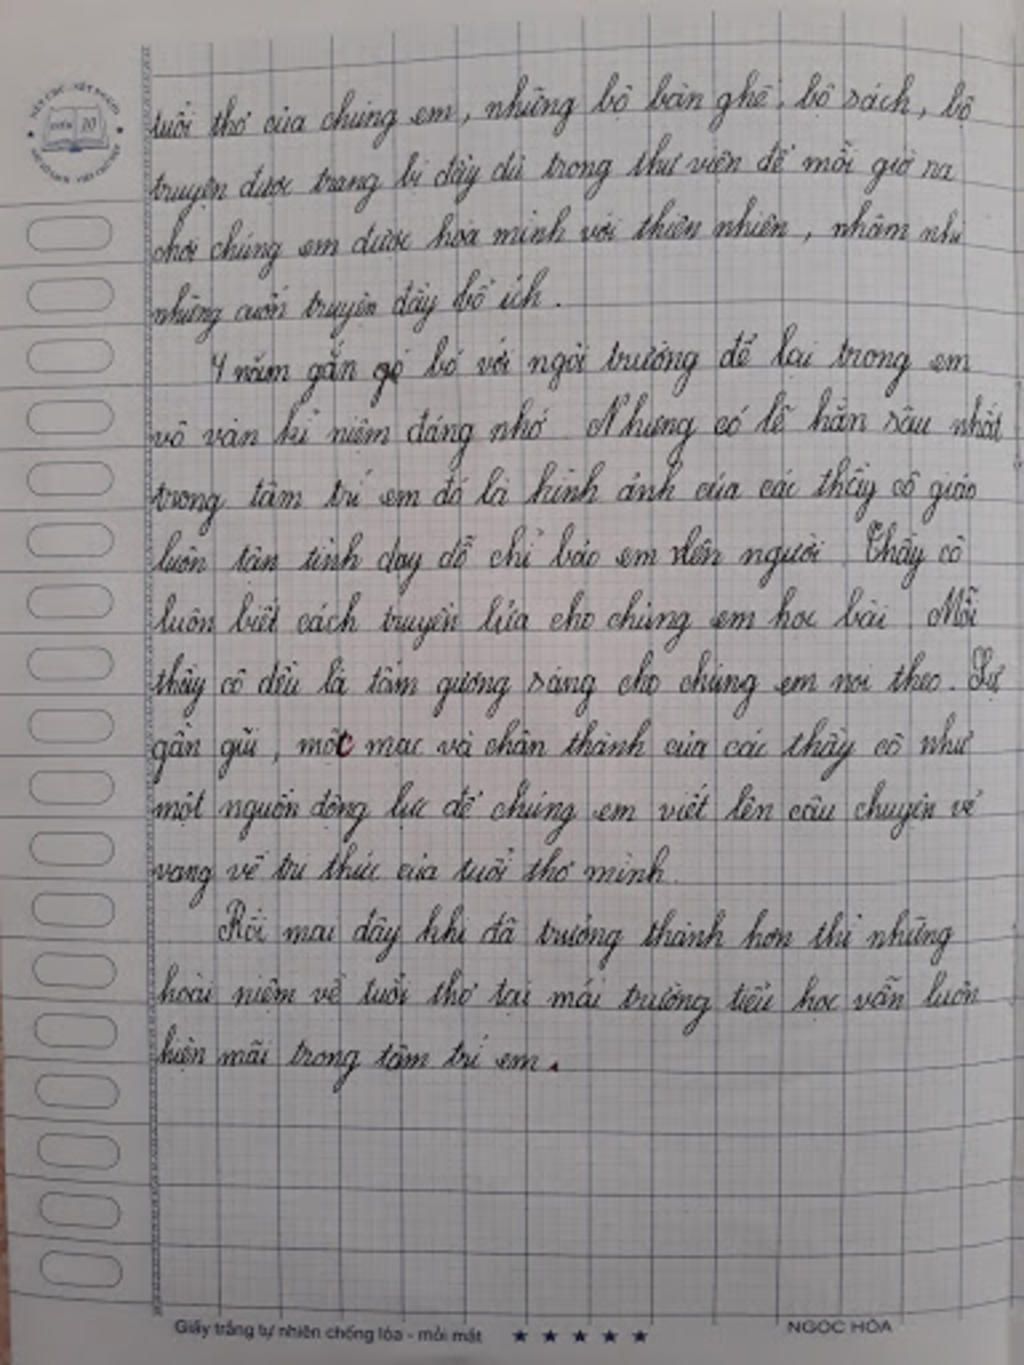 tuổi thơ của chúng em, những bộ bàn ghế, bộ sách, bộ
truyện được trang bị đầy đủ trong thư viện để mỗi giờ ra
chơi chúng em được hòa mình với thiên nhiên, nhâm nhi
những cuốn truyện đầy bổ ích.
4 năm gắn gó bó với ngôi trường để lại trong em
vô vàn kỉ niệm đáng nhớ. Nhưng có lẽ hằn sâu nhất
trong tâm trí em đó là hình ảnh của các thầy cô giáo
luôn tận tình dạy dỗ chỉ bảo em nên người. Thầy cô
luôn biết cách truyền lửa cho chúng em học bài. Mỗi
thầy cô đều là tấm gương sáng cho chúng em noi theo. Sự
gần gũi, mộc mạc và chân thành của các thầy cô như
một nguồn động lực để chúng em viết lên câu chuyện vẻ
vang về tri thức của tuổi thơ mình.
Rồi mai đây khi đã trưởng thành hơn thì những
hoài niệm về tuổi thơ tại mái trường tiểu học vẫn luôn
hiện mãi trong tâm trí em.
Giấy trắng tự nhiên chống lóa - mỏi mắt ★ ★ ★ ★ ★ NGỌC HÒA